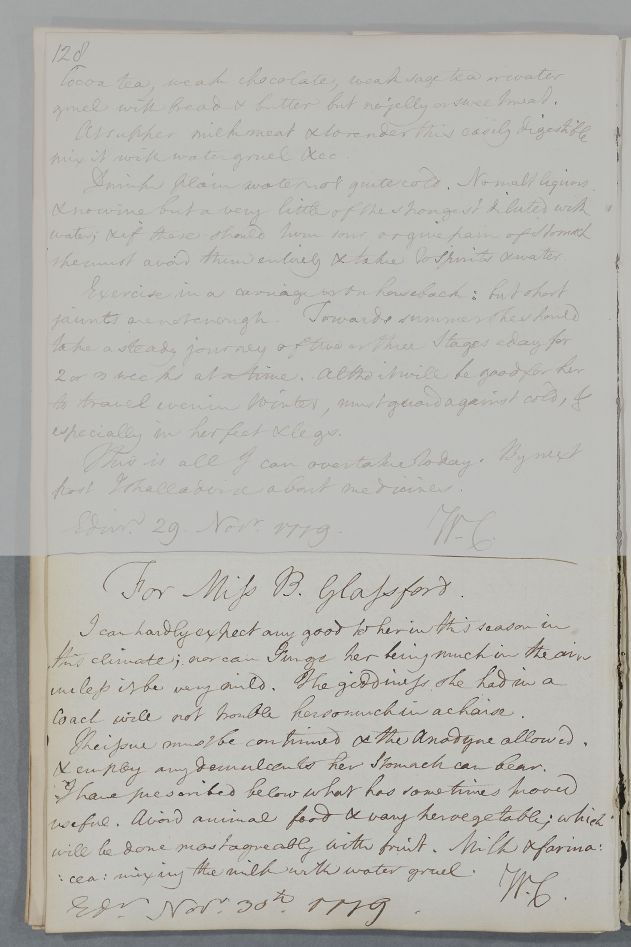 128
Cocoa tea, weak chocolate, weak sage tea or water
gruel with bread & butter but no jelly or sweetmeat.
At supper milk meat & to render this easily digestible
mix it with water gruel &cc.
Drink plain water not quite cold. No malt liquors
& no wine but a very little of the strongest diluted with
water; & if these should turn sour or give pain of stomach
she must avoid them entirely & take to spirits & water.
Exercise in a carriage or on horseback: but short
jaunts are not enough. Towards summer she should
take a steady journey of two or three Stages a day for
2 or 3 weeks at a time. Altho it will be good for her
to travel even in Winter, must guard against cold, &
especially in her feet & legs.
This is all I can overtake today. By next
post I shall advise about medicines.
Edinr. 29 Novr. 1779. W.C.
For Miss B. Glassford.
I can hardly expect any good to her in this season in
this climate; nor can I urge her being much in the air
unless it be very mild. The giddiness she had in a
Coach will not trouble her so much in a chaise.
The issue must be continued & the Anodyne allowed.
& employ any demulcents her Stomach can bear.
I have prescribed below what has sometimes proved
useful. Avoid animal food & vary her vegetable; which
will be done most agreeably with fruit. Milk & farina:
:cea: mixing the milk with water gruel. W.C.
Edr. Novr. 30th. 1779.